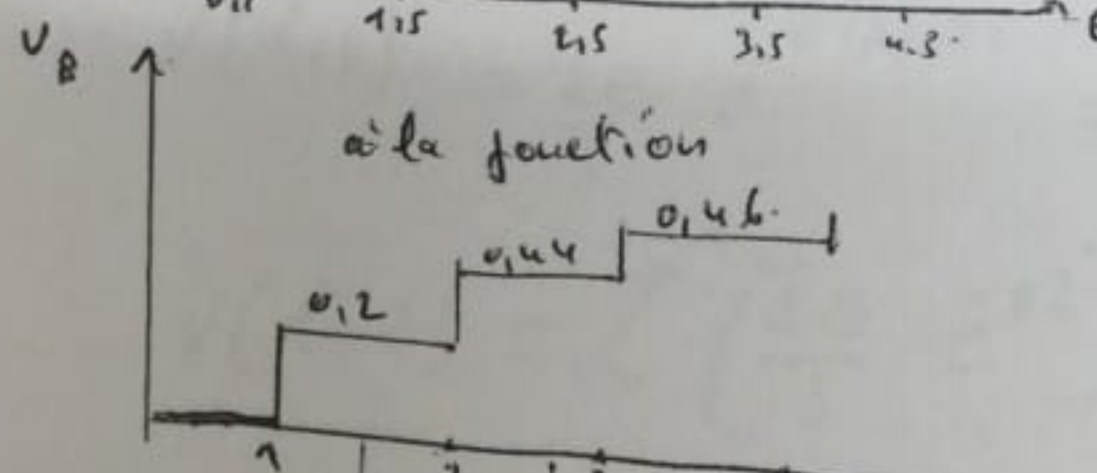 1,5 2,5 3,5 4.5
V_B
à la jonction
0,46
0,44
0,2
1